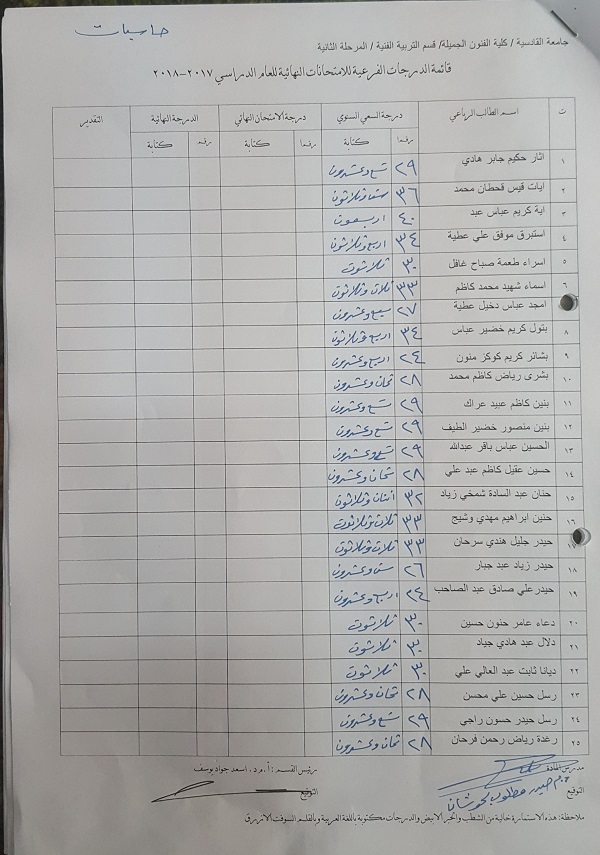 حاسبات
جامعة القادسية / كلية الفنون الجميلة/ قسم التربية الفنية / المرحلة الثانية
قائمة الدرجات الفرعية للامتحانات النهائية للعام الدراسي ٢٠١٧-٢٠١٨
ت اسم الطالب الرباعي درجة السعي السنوي درجة الامتحان النهائي الدرجة النهائية التقدير
رقما كتابة رقما كتابة رقما كتابة
١ اثار حكيم جابر هادي ٢٩ تسع وعشرون
٢ ايات قيس قحطان محمد ٣٦ ست وثلاثون
٣ اية كريم عباس عبد ٤٠ اربعون
٤ استبرق موفق علي عطية ٣٤ اربع وثلاثون
٥ اسراء طعمة صباح غافل ٣٠ ثلاثون
٦ اسماء شهيد محمد كاظم ٣٣ ثلاث وثلاثون
امجد عباس دخيل عطية ٢٧ سبع وعشرون
٨ بتول كريم خضير عباس ٣٤ اربع وثلاثون
٩ بشائر كريم كوكز منون ٢٤ اربع وعشرون
١٠ بشرى رياض كاظم محمد ٢٨ ثمان وعشرون
١١ بنين كاظم عبيد عراك ٢٩ تسع وعشرون
١٢ بنين منصور خضير الطيف ٢٩ تسع وعشرون
١٣ الحسين عباس باقر عبدالله ٢٩ تسع وعشرون
١٤ حسين عقيل كاظم عبد علي ٢٨ ثمان وعشرون
١٥ حنان عبد السادة شمخي زياد ٣٢ اثنان وثلاثون
١٦ حنين ابراهيم مهدي وشيح ٣٣ ثلاث وثلاثون
١٧ حيدر جليل هندي سرحان ٣٣ ثلاث وثلاثون
١٨ حيدر زياد عبد جبار ٢٦ ست وعشرون
١٩ حيدرعلي صادق عبد الصاحب ٢٤ اربع وعشرون
٢٠ دعاء عامر حنون حسين ٣٠ ثلاثون
٢١ دلال عبد هادي جياد ٣٠ ثلاثون
٢٢ ديانا ثابت عبد العالي علي ٣٠ ثلاثون
٢٣ رسل حسين علي محسن ٢٨ ثمان وعشرون
٢٤ رسل حيدر حسون راجي ٢٩ تسع وعشرون
٢٥ رغدة رياض رحمن فرحان ٢٨ ثمان وعشرون
مدرس المادة رئيس القسم : أ.م.د. اسعد جواد يوسف
التوقيع م.م حيدر مطلوب التوقيع
ملاحظة: هذه الاستمارة خالية من الشطب والحبر الابيض والدرجات مكتوبة باللغة العربية وبالقلم السوفت الازرق